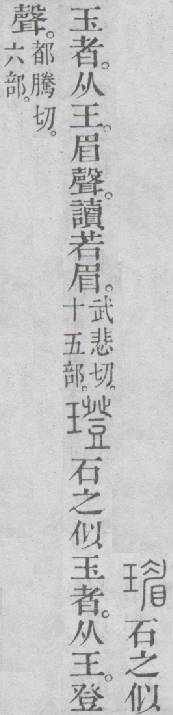 瑂石之似
玉者。从王。眉聲。讀若眉。武悲切。十五部。璒石之似玉者。从王。登
聲。都騰切。六部。